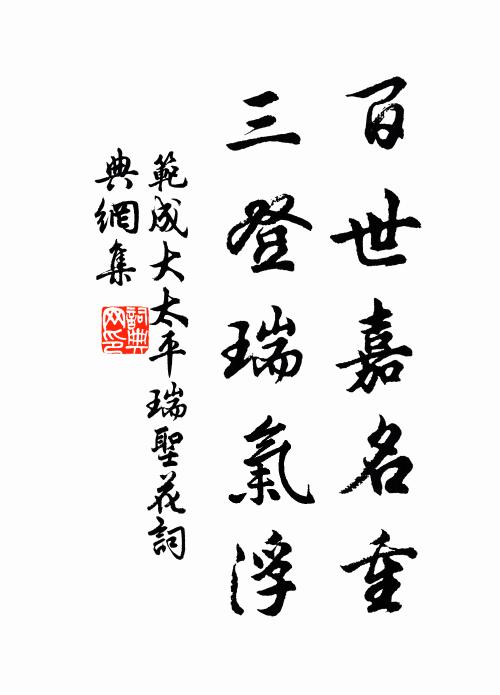 百世嘉名重
三登瑞氣浮
範成大太平瑞聖花詞
典網集
詞典
网印